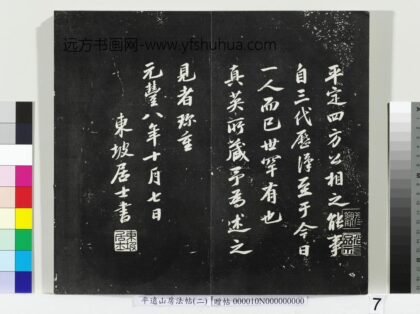 远方书画网-www.yfshuhua.com
平定四方公相之能事
自三代歷漢至于今日
一人而已世罕有也
真英所藏予為述之
見者珍重
元豐八年十月七日
東坡居士書
平遠山房法帖(二)
贈帖 000010N000000000
7